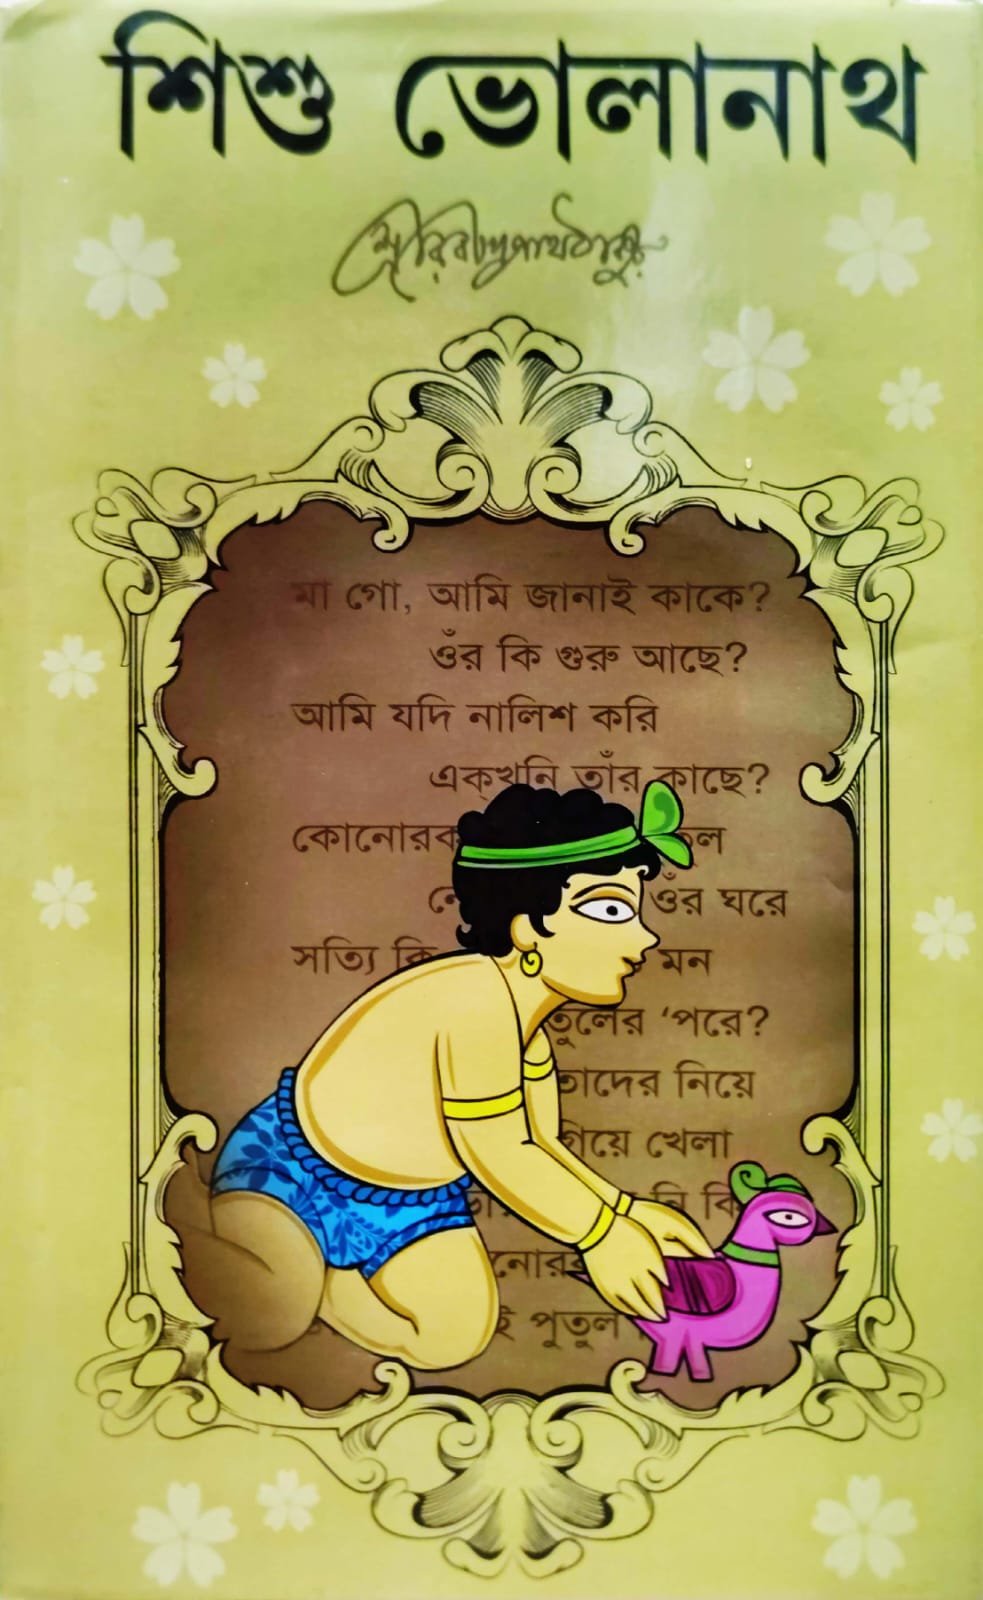 শিশু ভোলানাথ
শ্রীরবীন্দ্রনাথ ঠাকুর
মা গো, আমি জানাই কাকে?
ওঁর কি গুরু আছে?
আমি যদি নালিশ করি
এক্‌খনি তাঁর কাছে?
কোনোরক
ওঁর ঘরে
সত্যি কি মন
তুলের ‘পরে?
তাদের নিয়ে
গিয়ে খেলা
নি কি
নোর
ই পুতুল